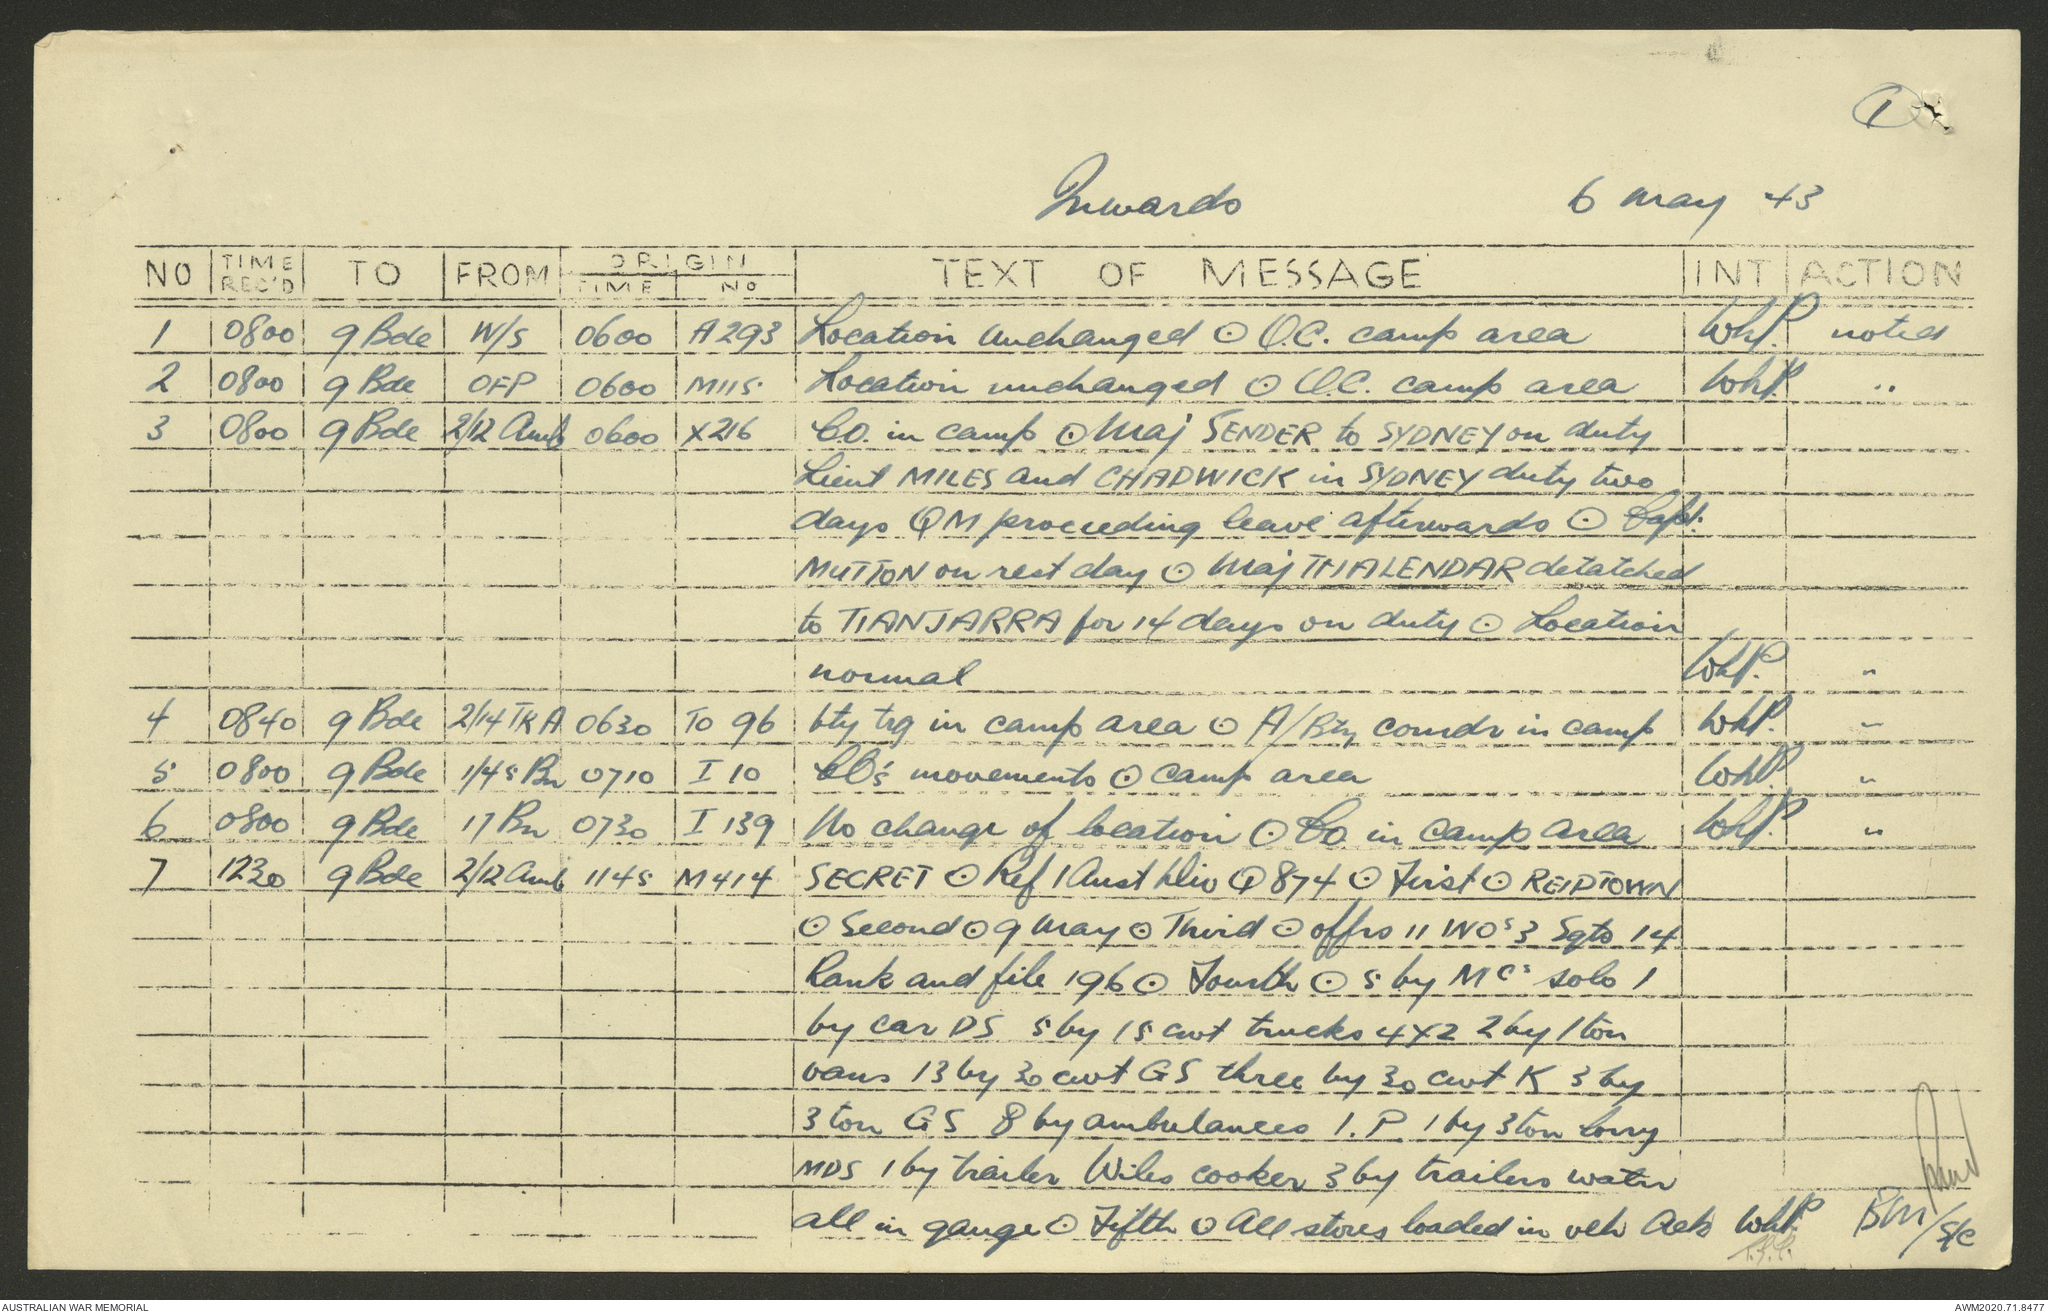 1
Inwards 6 May 43
NO TIME REC'D TO FROM ORIGIN TIME No TEXT OF MESSAGE INT ACTION
1 0800 9 Bde W/S 0600 A293 Location unchanged ⊙ O.C. camp area WhP. noted
2 0800 9 Bde OFP 0600 M115 Location unchanged ⊙ O.C. camp area WhP. "
3 0800 9 Bde 2/12 Amb 0600 X216 Co. in camp ⊙ Maj SENDER to SYDNEY on duty
Lieut MILES and CHADWICK in SYDNEY duty two
days QM proceeding leave afterwards ⊙ Capt.
MUTTON on rest day ⊙ Maj THALENDAR detatched
to TIANJARRA for 14 days on duty ⊙ Location
normal WhP. "
4 0840 9 Bde 2/14 0630 TO 96 bty trg in camp area ⊙ A/Bty comdr in camp WhP. "
5 0800 9 Bde 1/45 Bn 0710 I 10 CO's movements ⊙ Camp area WhP. "
6 0800 9 Bde 17 Bn 0730 I 139 No change of location ⊙ Co. in camp area WhP. "
7 1230 9 Bde 2/12 Amb 1145 M414 SECRET ⊙ Ref 1 Aust Div Q874 ⊙ First ⊙ REIDTOWN
⊙ Second ⊙ 9 May ⊙ Third ⊙ offrs 11 WOs 3 Sgts 14
Rank and file 196 ⊙ Fourth ⊙ 5 by MCs solo 1
by car DS 5 by 15 cwt trucks 4X2 2 by 1 ton
vans 13 by 30 cwt GS three by 30 cwt K 3 by
3 ton GS 8 by ambulances 1. P 1 by 3 ton lorry
MDS 1 by trailer Wiles cooker 3 by trailers water
all in gauge ⊙ Fifth ⊙ All stores loaded in veh Ack WhP. BM/SC
AUSTRALIAN WAR MEMORIAL AWM2020.71.8477